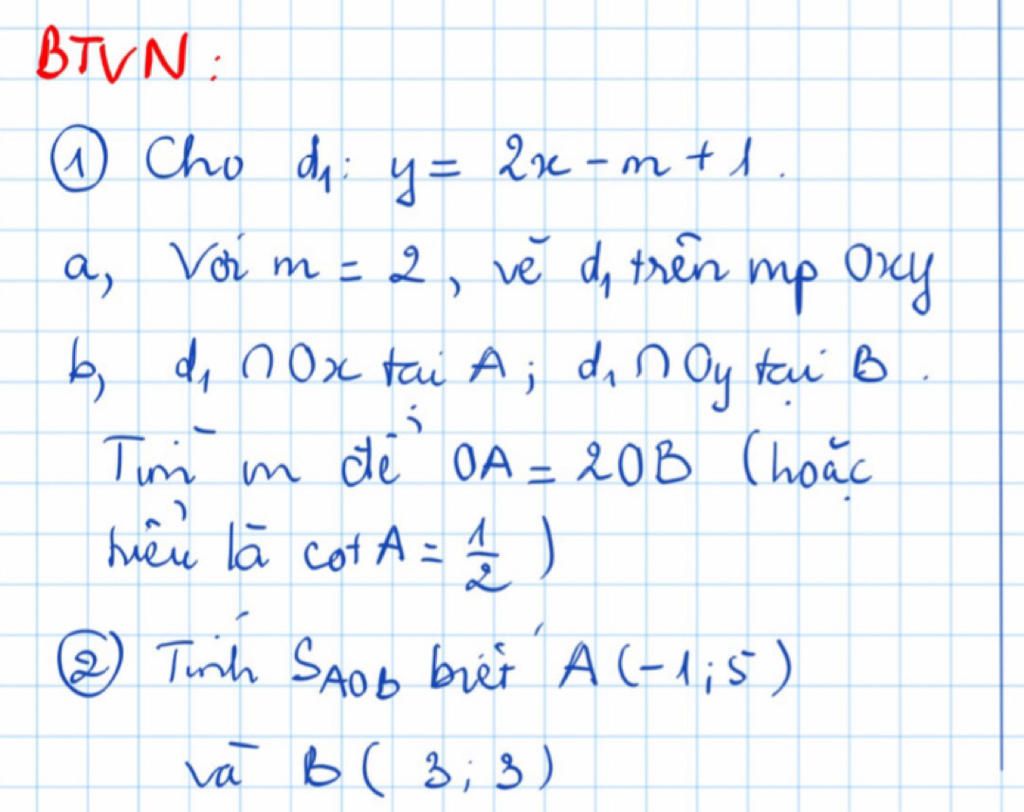 BTVN:
① Cho d₁: y = 2x - m + 1.
a, Với m = 2, vẽ d₁ trên mp Oxy
b, d₁ ∩ Ox tại A; d₁ ∩ Oy tại B.
Tìm m để OA = 2OB (hoặc
hiểu là cot A = 1/2)
② Tính S_AOB biết A(-1;5)
và B(3;3)